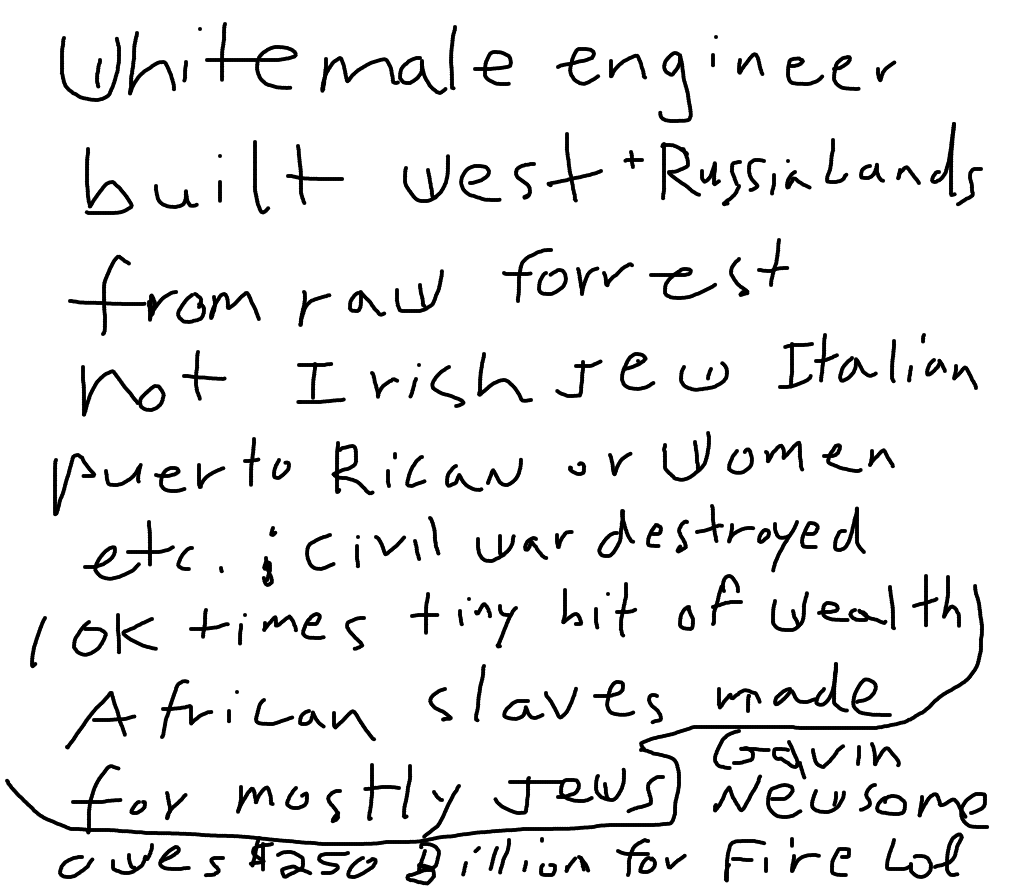 White male engineer
built west + Russia Lands
from raw forrest
not Irish Jew Italian
puerto Rican or Women
etc. ; Civil war destroyed
10K times tiny bit of wealth
African slaves made
for mostly Jews
Gavin
Newsome
owes $250 Billion for Fire Lol